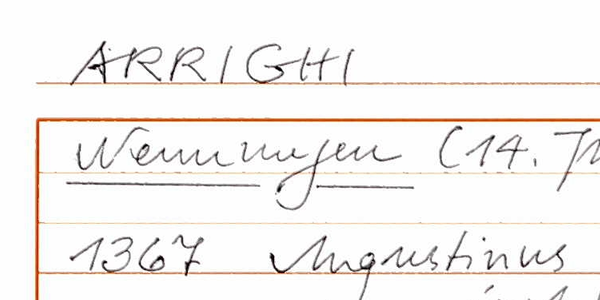 ARRIGHI
Nennungen (14. Jh
1367 Augustinus